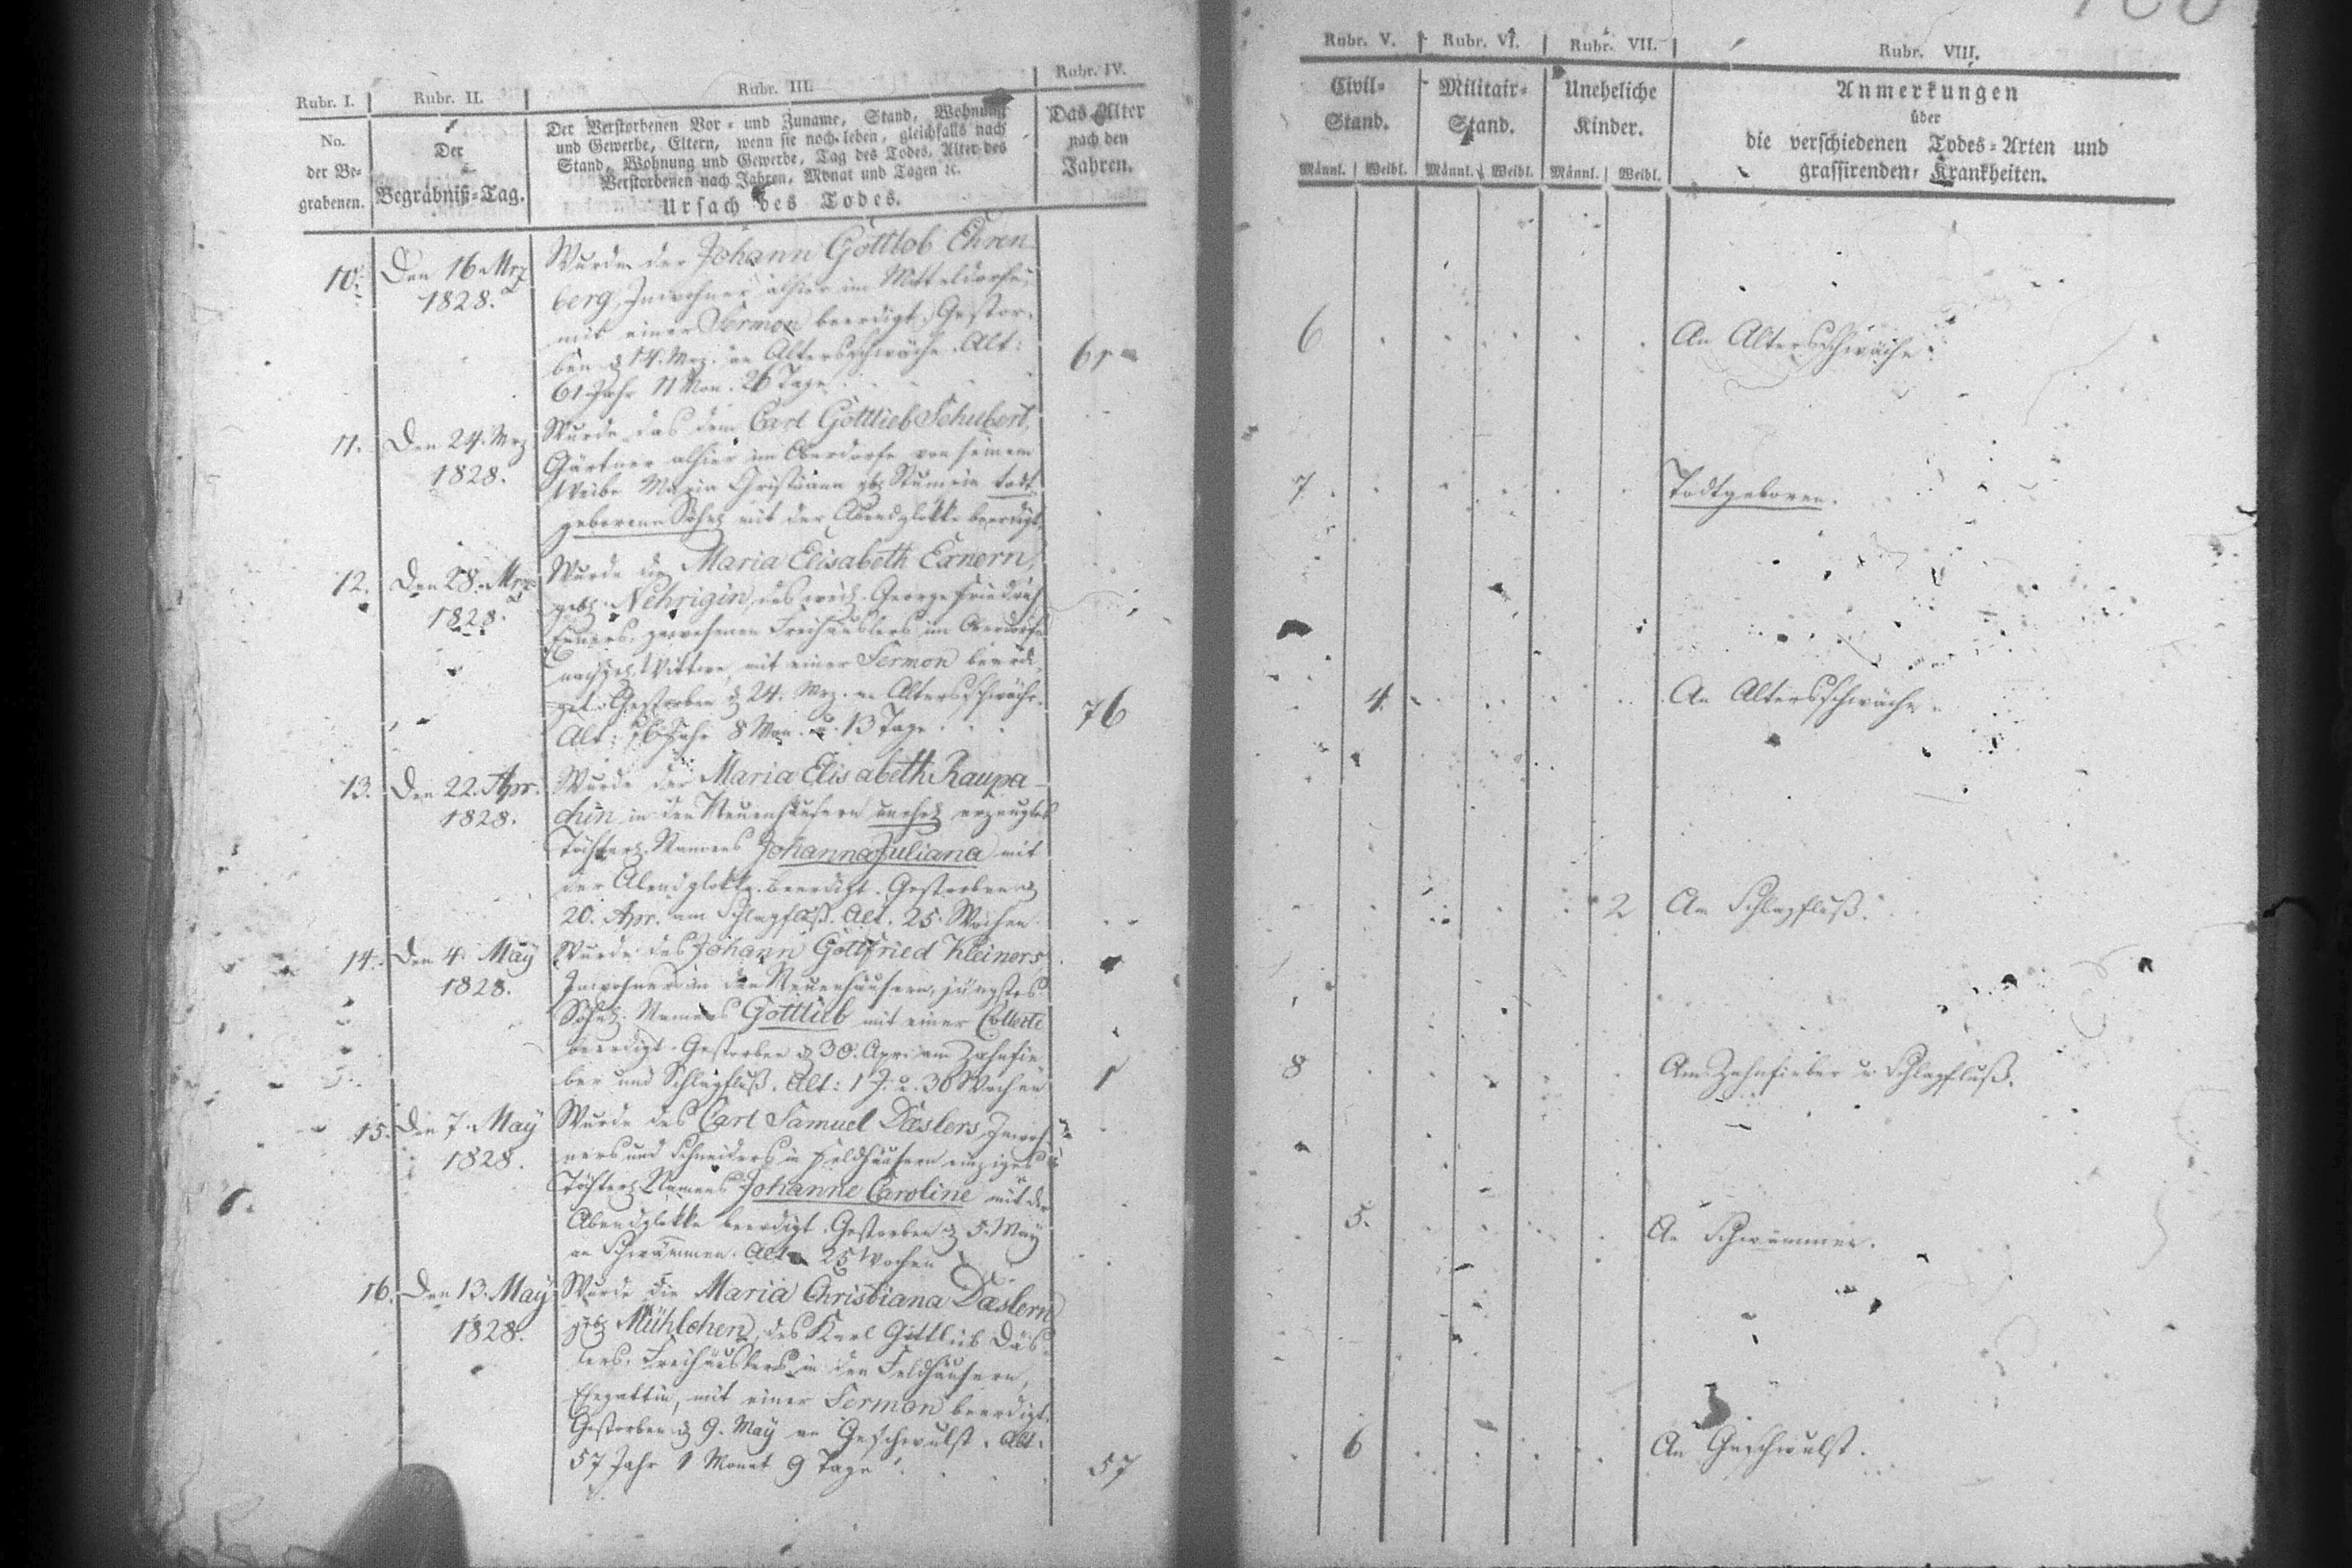 Rubr. I.
No.
der Be-
grabenen.
Rubr. II.
Der
Begräbniß-Tag.
Rubr. III.
Der Verstorbenen Vor- und Zuname, Stand, Wohnung
und Gewerbe, Eltern, wenn sie noch leben, gleichfalls nach
Stand, Wohnung und Gewerbe, Tag des Todes, Alter des
Verstorbenen nach Jahren, Monat und Tagen ꝛc.
Ursach des Todes.
Rubr. IV.
Das Alter
nach den
Jahren.
Rubr. V.
Civil-
Stand.
Männl. Weibl.
Rubr. VI.
Militair-
Stand.
Männl. Weibl.
Rubr. VII.
Uneheliche
Kinder.
Männl. Weibl.
Rubr. VIII.
Anmerkungen
über
die verschiedenen Todes-Arten und
grassirenden Krankheiten.
10.
Den 16. Mrz
1828.
Wurde der Johann Gottlob Ehren-
berg, Inwohner alhier im Mitteldorfe,
mit einer Sermon beerdigt. Gestor-
ben d 14. Mrz. an Altersschwäche. Alt:
61 Jahr 11 Mon. 26 Tage.
61
6
An Altersschwäche.
11.
Den 24. Mrz
1828.
Wurde das dem Carl Gottlieb Schubert,
Gärtner alhier im Oberdorfe von seinem
Weibe Maria Christiana geb. todt
geborene Söhnl. mit der Abendglokke beerdigt.
7
Todtgeboren.
12.
Den 28. Mrz
1828.
Wurde die Maria Elisabeth Exnern,
geb. Nehrigin, des weil. George Friedrich
Exners, gewesenen Freihäuslers im Oberdorfe
nachgel. Wittwe, mit einer Sermon beerdi-
get. Gestorben d 24. Mrz. an Altersschwäche.
Alt: 76 Jahr 8 Mon. u. 13 Tage.
76
4.
An Altersschwäche.
13.
Den 22. Apr.
1828.
Wurde der Maria Elisabeth Raupa-
chin in den Neuenhäusern unehel. erzeugtes
Töchterl. Namens Johanna Juliana mit
der Abendglokke beerdigt. Gestorben d
20. Apr. am Schlagfluß. Alt. 25 Wochen.
2
Am Schlagfluß.
14.
Den 4. May
1828.
Wurde des Johann Gottfried Kleiners
Inwohner in den Neuenhäusern, jüngstes
Söhnl. Namens Gottlieb mit einer Collecte
beerdigt. Gestorben d 30. Apr. am Zahnfie-
ber und Schlagfluß. Alt: 1 J. u. 30 Wochen
1
8
Am Zahnfieber u. Schlagfluß.
15.
Den 7. May
1828.
Wurde des Carl Samuel Dæslers, Inwoh-
ners und Schneiders in Feldhäusern einziges
Töchterl. Namens Johanne Caroline mit der
Abendglokke beerdigt. Gestorben d 5. May
an Schwämmen. Alt 25 Wochen
5.
An Schwämmen.
16.
Den 13. May
1828.
Wurde die Maria Christiana Dæslern
geb. Mühlchen, des Karl Gottlieb Däs-
lers, Freihäuslers in den Feldhäusern,
Ehegattin, mit einer Sermon beerdigt.
Gestorben d 9. May an Geschwulst. Alt.
57 Jahr 1 Monat 9 Tage.
57
6
An Geschwulst.